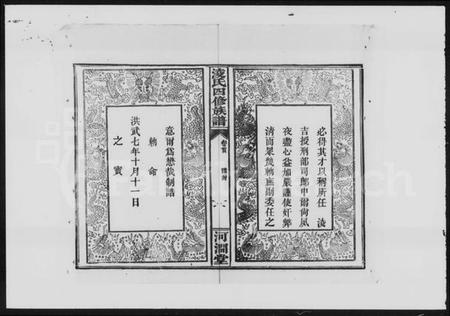 必得其才以稱所任　淩
吉授刑部司郎中爾尚夙
夜盡心益加嚴謹使奸弊
清而衆
委任之
凌氏四修族譜
卷首
河澗堂
意爾爲懋哉制誥
勅命
洪武七年十月十一日
之寶